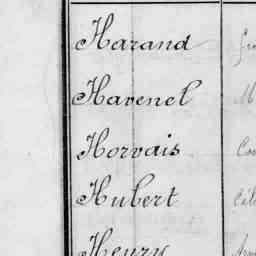 Harand
Havenel
Horvais
Hubert
Heury